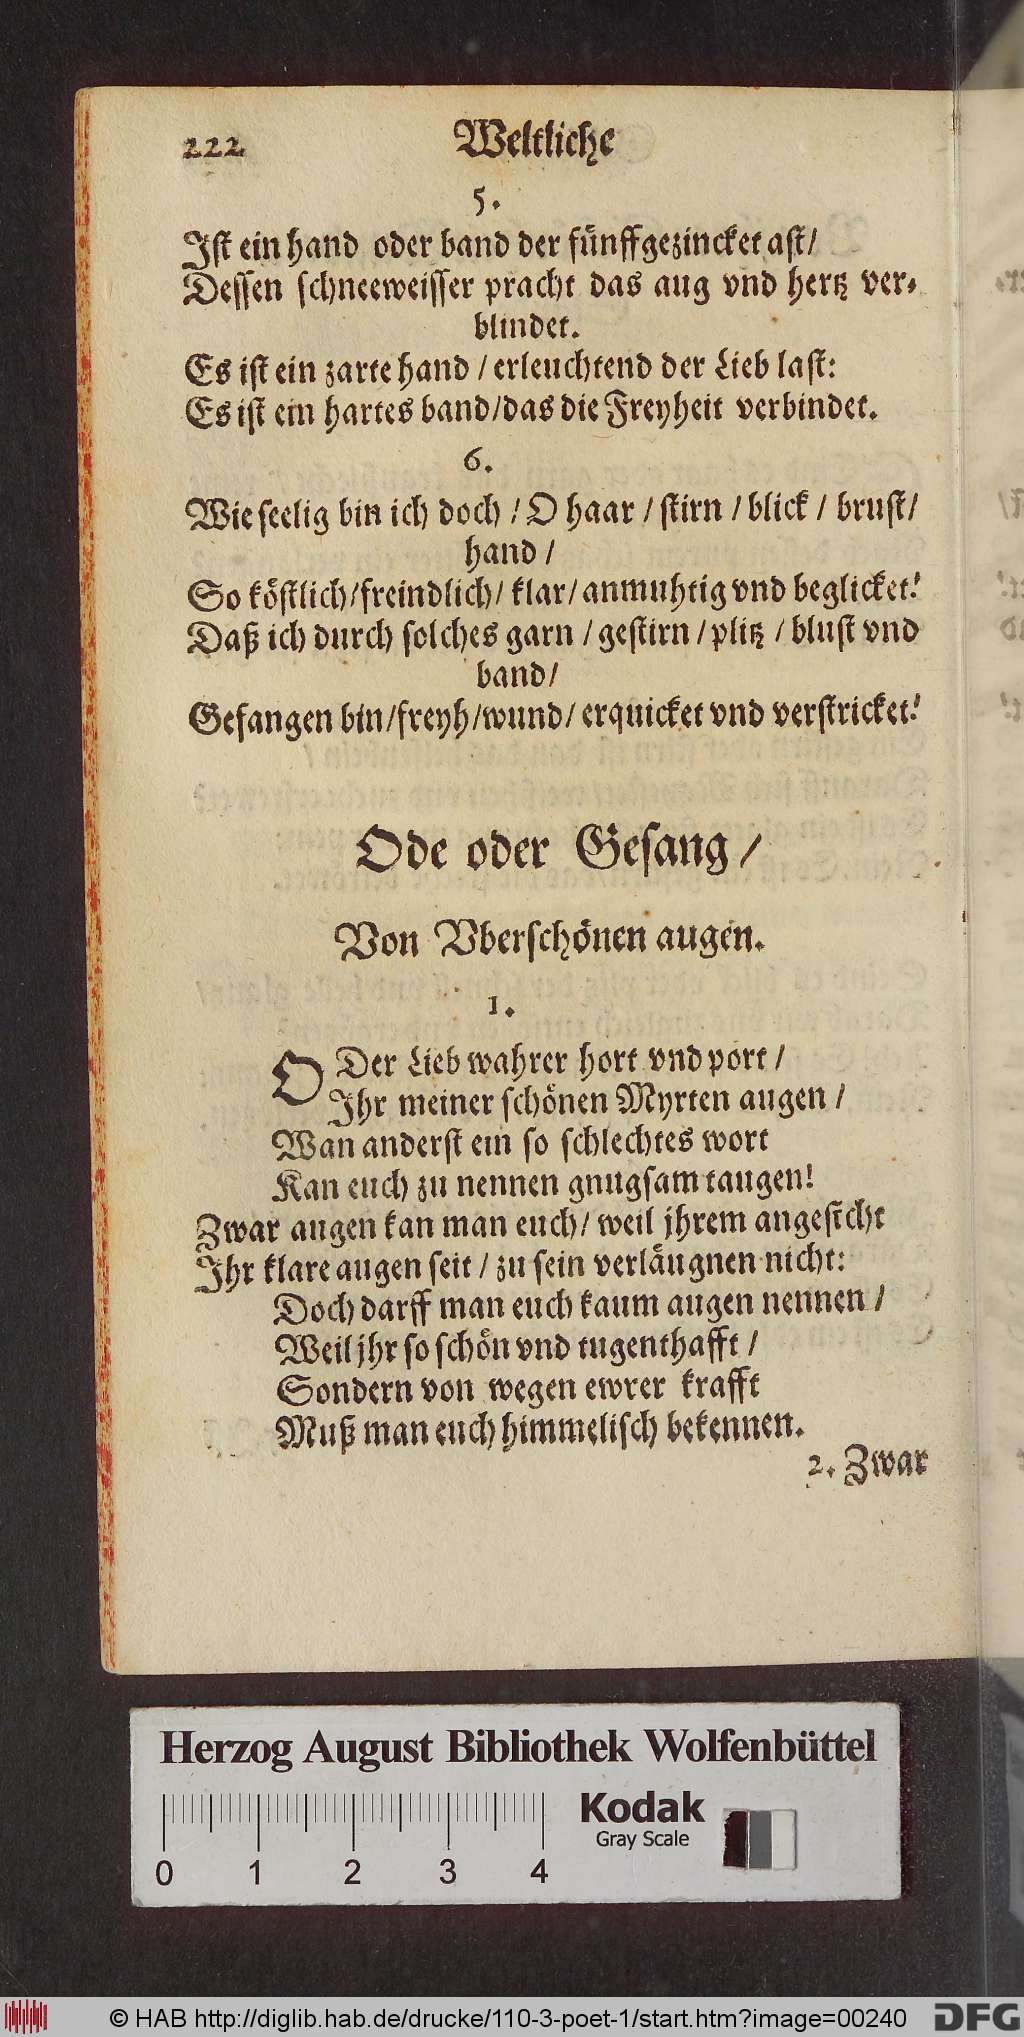 222 Weltliche
5.
Ist ein hand oder band der fünffgezincket ast/
Dessen schneeweisser pracht das aug vnd hertz ver-
blindet.
Es ist ein zarte hand / erleuchtend der Lieb last:
Es ist ein hartes band/das die Freyheit verbindet.
6.
Wie seelig bin ich doch / O haar / stirn / blick / brust/
hand /
So köstlich/freindlich/ klar/ anmuhtig vnd beglicket!
Daß ich durch solches garn / gestirn / plitz / blust vnd
band/
Gefangen bin/freyh/wund/ erquicket vnd verstricket!
Ode oder Gesang /
Von Vberschönen augen.
1.
O Der Lieb wahrer hort vnd port /
Ihr meiner schönen Myrten augen /
Wan anderst ein so schlechtes wort
Kan euch zu nennen gnugsam taugen!
Zwar augen kan man euch/ weil jhrem angesicht
Ihr klare augen seit / zu sein verläugnen nicht:
Doch darff man euch kaum augen nennen /
Weil jhr so schön vnd tugenthafft /
Sondern von wegen ewrer krafft
Muß man euch himmelisch bekennen.
2. Zwar
Herzog August Bibliothek Wolfenbüttel
Kodak
Gray Scale
0 1 2 3 4
© HAB http://diglib.hab.de/drucke/110-3-poet-1/start.htm?image=00240 DFG